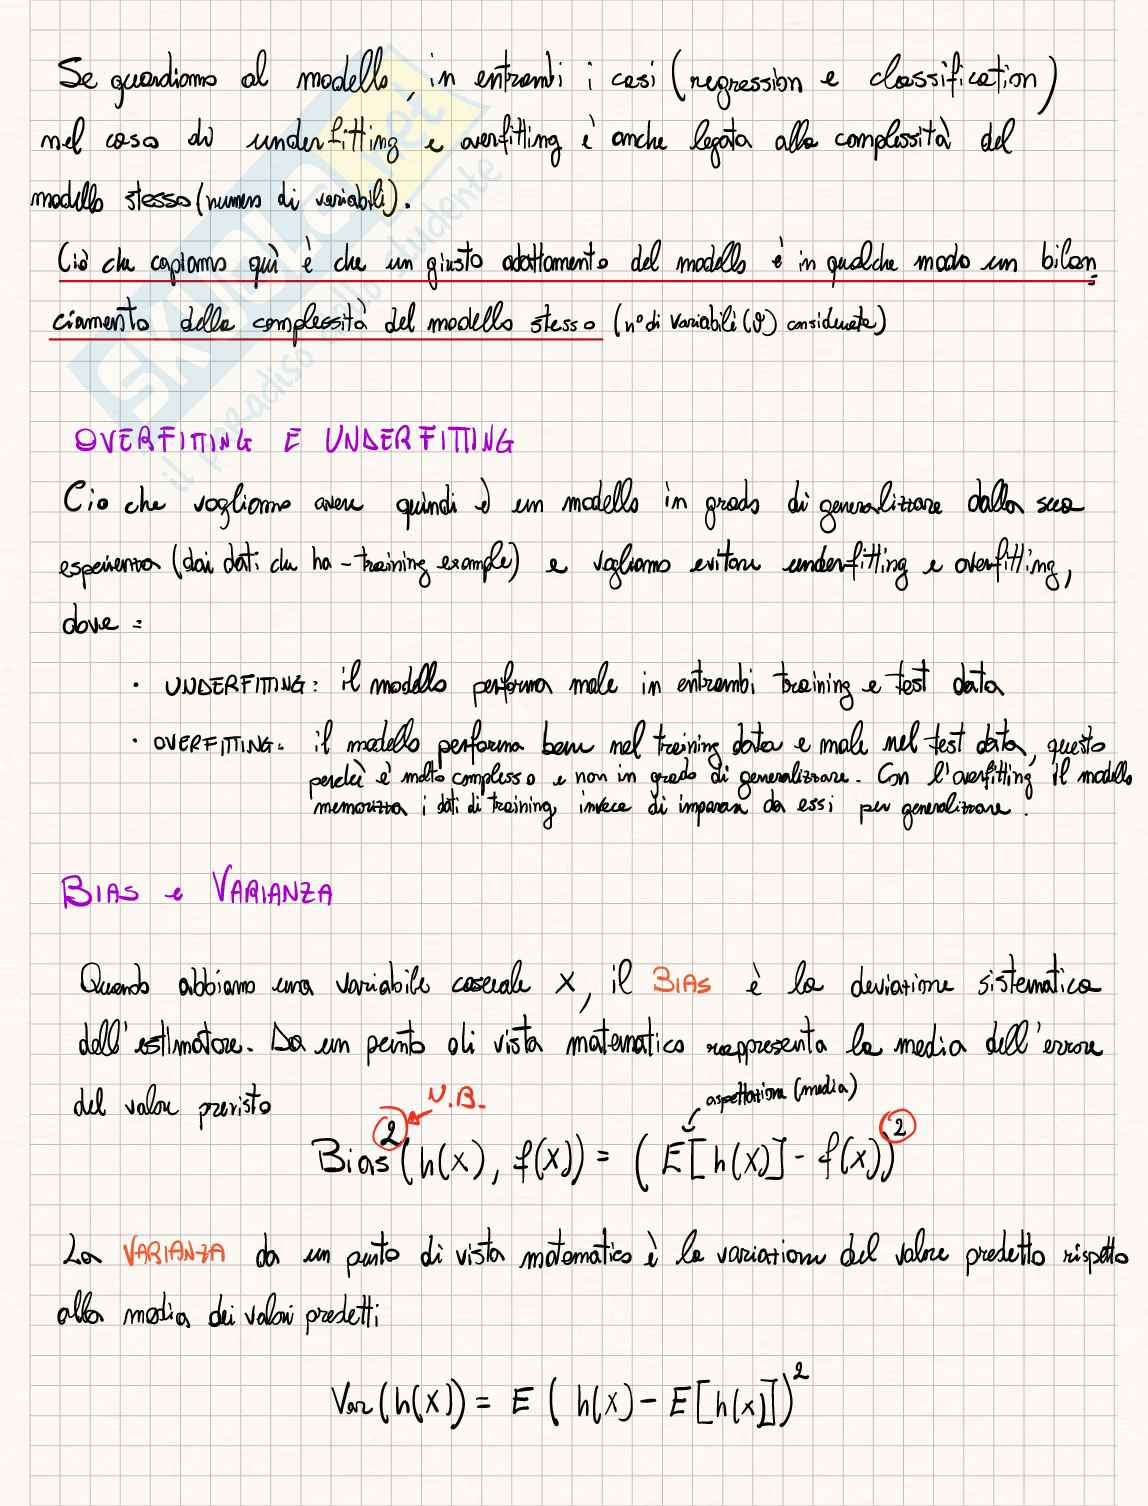 Se guardiamo al modello, in entrambi i casi (regression e classification)
nel caso di underfitting e overfitting è anche legata alla complessità del
modello stesso (numero di variabili).
Ciò che capiamo quì è che un giusto adattamento del modello è in qualche modo un bilan
ciamento della complessità del modello stesso (n° di variabili (θ) considerate)
OVERFITTING E UNDERFITTING
Cio che vogliamo avere quindi è un modello in grado di generalizzare dalla sua
esperienza (dai dati che ha - training example) e vogliamo evitare underfitting e overfitting,
dove :
· UNDERFITTING: il modello performa male in entrambi training e test data
· OVERFITTING: il modello performa bene nel training data e male nel test data, questo
perchè è molto complesso e non in grado di generalizzare. Con l'overfitting il modello
memorizza i dati di training, invece di imparare da essi per generalizzare.
BIAS e VARIANZA
Quando abbiamo una variabile casuale X, il BIAS è la deviazione sistematica
dell'estimatore. Da un punto di vista matematico rappresenta la media dell'errore
del valore previsto
N.B.
aspettazione (media)
Bias²(h(x), f(x)) = (E[h(x)] - f(x))²
La VARIANZA da un punto di vista matematico è la variazione del valore predetto rispetto
alla media dei valori predetti
Var(h(x)) = E(h(x) - E[h(x)])²
SKUOLA.net
il paradiso dello studente